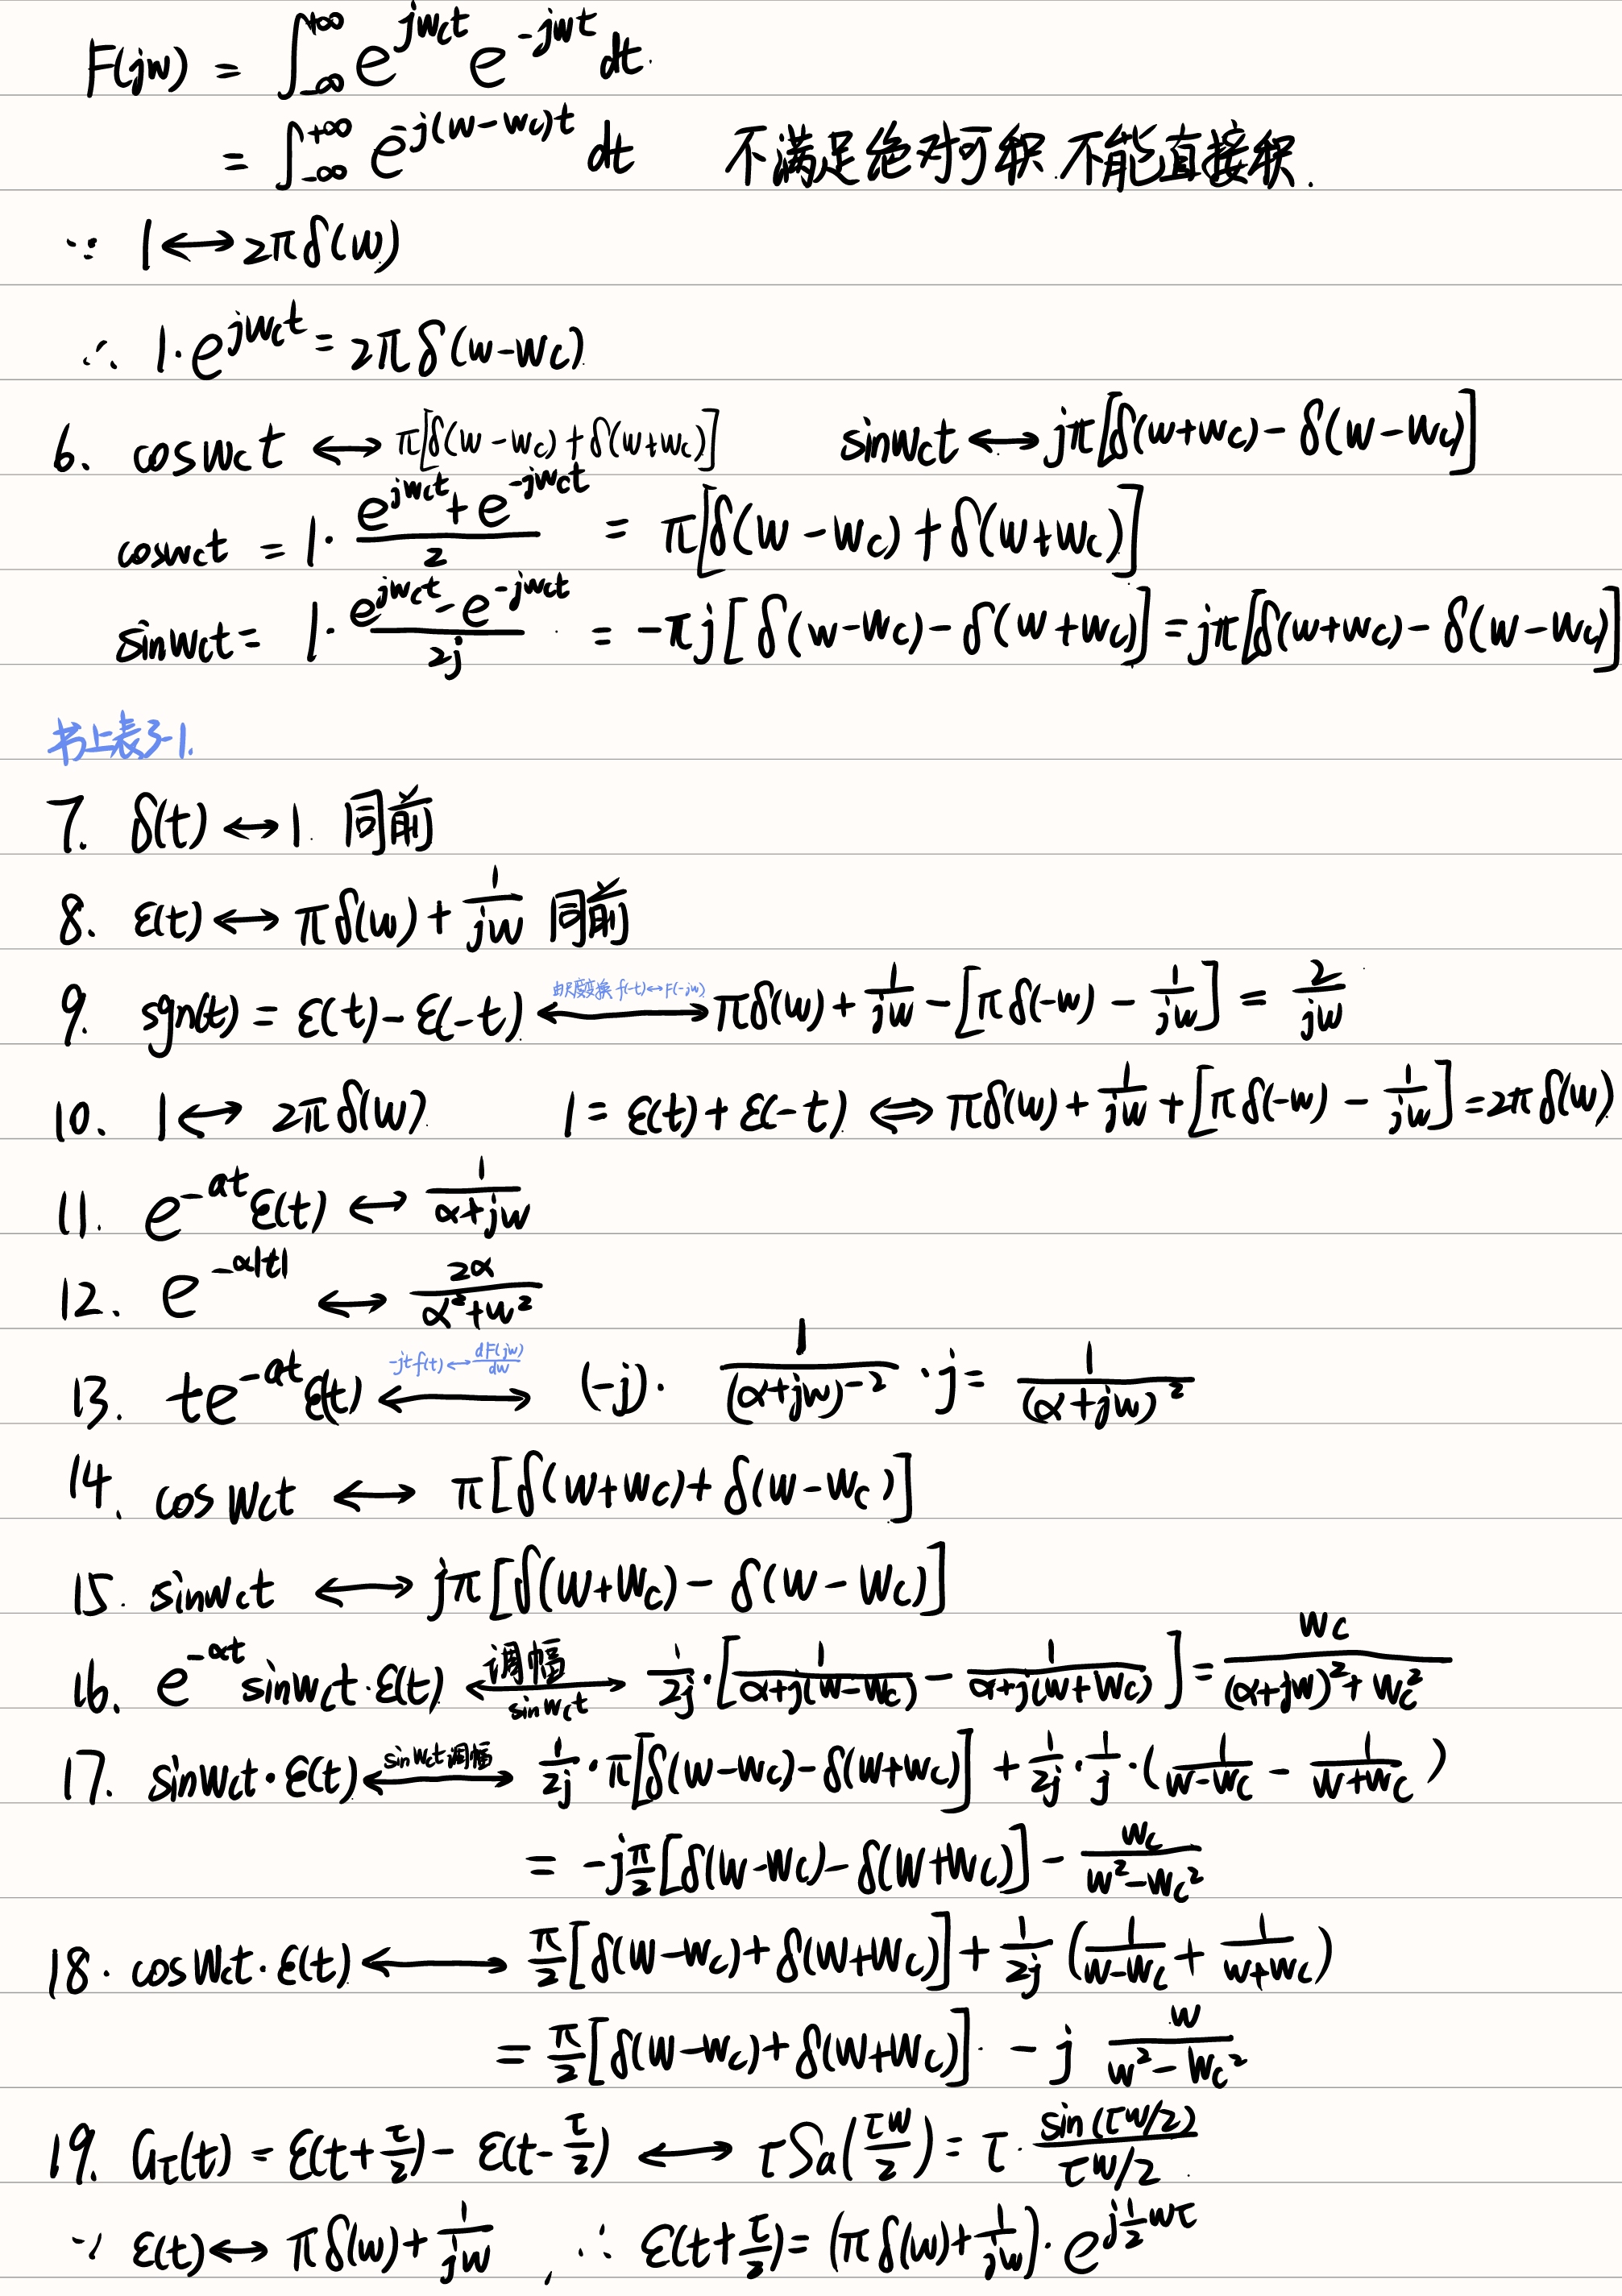 F(jw) = ∫_{-∞}^{+∞} e^{jw_c t} e^{-jwt} dt.
= ∫_{-∞}^{+∞} e^{-j(w-w_c)t} dt 不满足绝对可积.不能直接积.
∵ 1 ↔ 2πδ(w)
∴ 1·e^{jw_c t} = 2πδ(w-w_c)
6. cosw_c t ↔ π[δ(w-w_c)+δ(w+w_c)] sinw_c t ↔ jπ[δ(w+w_c)-δ(w-w_c)]
cosw_c t = 1·\frac{e^{jw_c t}+e^{-jw_c t}}{2} = π[δ(w-w_c)+δ(w+w_c)]
sinw_c t = 1·\frac{e^{jw_c t}-e^{-jw_c t}}{2j} = -πj[δ(w-w_c)-δ(w+w_c)] = jπ[δ(w+w_c)-δ(w-w_c)]
书上表3-1.
7. δ(t) ↔ 1. 同前
8. ε(t) ↔ πδ(w)+\frac{1}{jw} 同前
9. sgn(t) = ε(t)-ε(-t) \xleftrightarrow{由尺度变换 f(-t)↔F(-jw)} πδ(w)+\frac{1}{jw}-[πδ(-w)-\frac{1}{jw}] = \frac{2}{jw}
10. 1 ↔ 2πδ(w). 1 = ε(t)+ε(-t) ⇔ πδ(w)+\frac{1}{jw}+[πδ(-w)-\frac{1}{jw}] = 2πδ(w)
11. e^{-αt}ε(t) ↔ \frac{1}{α+jw}
12. e^{-α|t|} ↔ \frac{2α}{α^2+w^2}
13. te^{-αt}ε(t) \xleftrightarrow{-jtf(t)↔\frac{dF(jw)}{dw}} (-j)·\frac{1}{(α+jw)^{-2}}·j = \frac{1}{(α+jw)^2}
14. cosw_c t ↔ π[δ(w+w_c)+δ(w-w_c)]
15. sinw_c t ↔ jπ[δ(w+w_c)-δ(w-w_c)]
16. e^{-αt}sinw_c t·ε(t) \xleftrightarrow[sinw_c t]{调幅} \frac{1}{2j}·[\frac{1}{α+j(w-w_c)}-\frac{1}{α+j(w+w_c)}] = \frac{w_c}{(α+jw)^2+w_c^2}
17. sinw_c t·ε(t) \xleftrightarrow{sinw_c t调幅} \frac{1}{2j}·π[δ(w-w_c)-δ(w+w_c)]+\frac{1}{2j}·\frac{1}{j}·(\frac{1}{w-w_c}-\frac{1}{w+w_c})
= -j\frac{π}{2}[δ(w-w_c)-δ(w+w_c)]-\frac{w_c}{w^2-w_c^2}
18. cosw_c t·ε(t) ↔ \frac{π}{2}[δ(w-w_c)+δ(w+w_c)]+\frac{1}{2j}(\frac{1}{w-w_c}+\frac{1}{w+w_c})
= \frac{π}{2}[δ(w-w_c)+δ(w+w_c)]-j\frac{w}{w^2-w_c^2}
19. G_τ(t) = ε(t+\frac{τ}{2})-ε(t-\frac{τ}{2}) ↔ τSa(\frac{τw}{2}) = τ·\frac{sin(τw/2)}{τw/2}
∵ ε(t) ↔ πδ(w)+\frac{1}{jw}, ∴ ε(t+\frac{τ}{2}) = (πδ(w)+\frac{1}{jw})·e^{j\frac{1}{2}wτ}